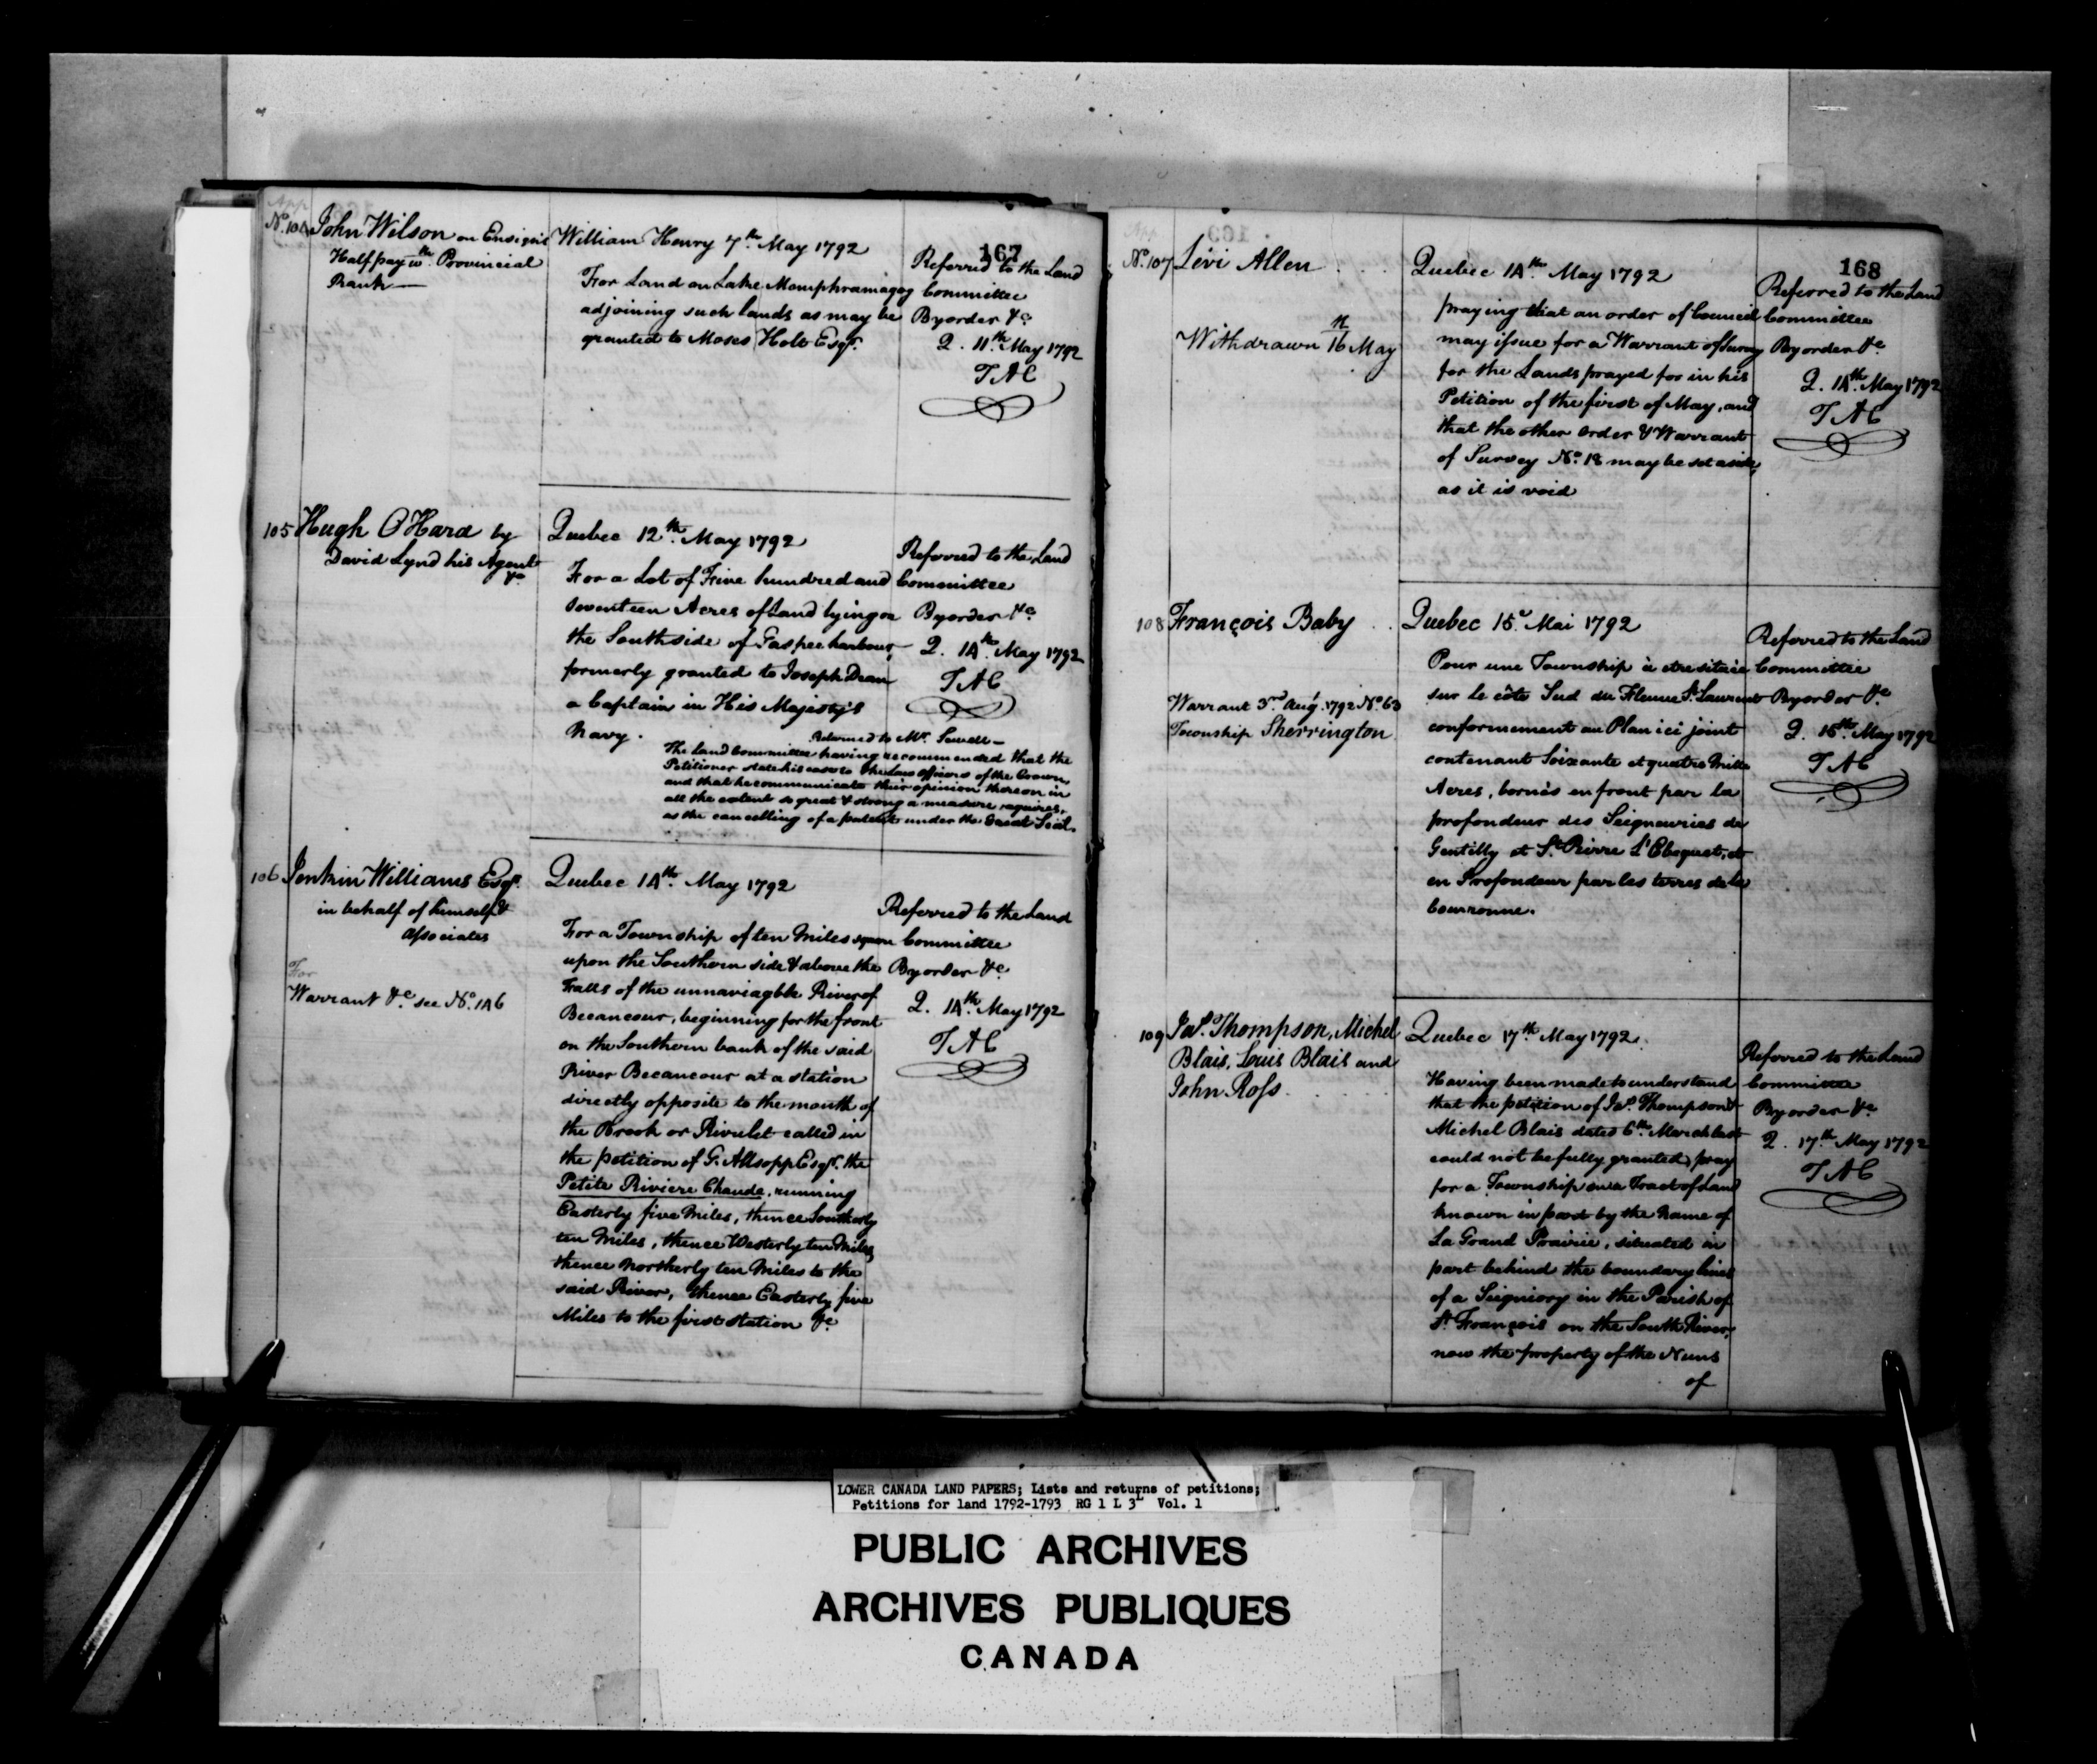 167
App
No. 104 John Wilson on Ensign's
Half pay wth. Provincial
Rank —
William Henry 7th. May 1792
For Land on Lake Memphramagog
adjoining such lands as may be
granted to Moses Holt Esqr.
Referred to the Land
Committee
By order &c
Q. 11th. May 1792
TAC
105 Hugh O'Hara by
David Lynd his Agent
&c
Quebec 12th. May 1792
For a Lot of Five hundred and
seventeen Acres of Land lying on
the South side of Gaspee harbour,
formerly granted to Joseph Dean
a Captain in His Majesty's
Navy.
Returned to Mr. Sewell —
The land Committee having recommended that the
Petitioner state his case to the Law officers of the Crown,
and that he communicate their opinion thereon in
all the extent so great & strong a measure requires,
as the cancelling of a patent under the Great Seal.
Referred to the Land
Committee
By order &c
Q. 14th. May 1792
TAC
106 Jenkin Williams Esqr.
in behalf of himself &
Associates
For
Warrant &c see No. 146
Quebec 14th. May 1792
For a Township of ten Miles square
upon the Southern side & above the
Falls of the unnaviagble River of
Becancour, beginning for the front
on the Southern bank of the said
River Becancour at a station
directly opposite to the mouth of
the Brook or Rivulet called in
the petition of G. Allsopp Esqr. the
Petite Riviere Chaude, running
Easterly five Miles, thence Southerly
ten Miles, thence Westerly ten Miles,
thence Northerly ten Miles to the
said River, thence Easterly five
Miles to the first station &c
Referred to the Land
Committee
By order &c
Q. 14th. May 1792
TAC
168
App
No. 107 Levi Allen
Withdrawn 16 May
Quebec 14th. May 1792
praying that an order of Council
may issue for a Warrant of Survey
for the Lands prayed for in his
Petition of the first of May, and
that the other order & Warrant
of Survey No. 18 may be set aside,
as it is void
Referred to the Land
Committee
By order &c
Q. 14th. May 1792
TAC
108 François Baby
Warrant 3rd Augt. 1792 No. 63
Township Sherrington
Quebec 15e. Mai 1792
Pour une Township à etre située
sur le côté Sud du Fleuve St. Laurent
conformement au Plan ici joint
contenant Soixante et quatre Mille
Acres, bornés en front par la
profondeur des Seigneuries de
Gentilly et St. Pierre L'Ebequet, et
en Profondeur par les terres de la
Couronne.
Referred to the Land
Committee
By order &c
Q. 15th. May 1792
TAC
109 Jas. Thompson, Michel
Blais, Louis Blais and
John Ross
Quebec 17th May 1792
Having been made to understand
that the petition of Jas. Thompson &
Michel Blais dated 6th. March last
could not be fully granted, pray
for a Township on a Tract of Land
known in part by the Name of
La Grand Prairie, situated in
part behind the boundary lines
of a Seigniory in the Parish of
St. François on the South River,
now the property of the Nuns
of
Referred to the Land
Committee
By order &c
Q. 17th May 1792
TAC
LOWER CANADA LAND PAPERS; Lists and returns of petitions;
Petitions for land 1792-1793 RG 1 L 3L Vol. 1
PUBLIC ARCHIVES
ARCHIVES PUBLIQUES
CANADA